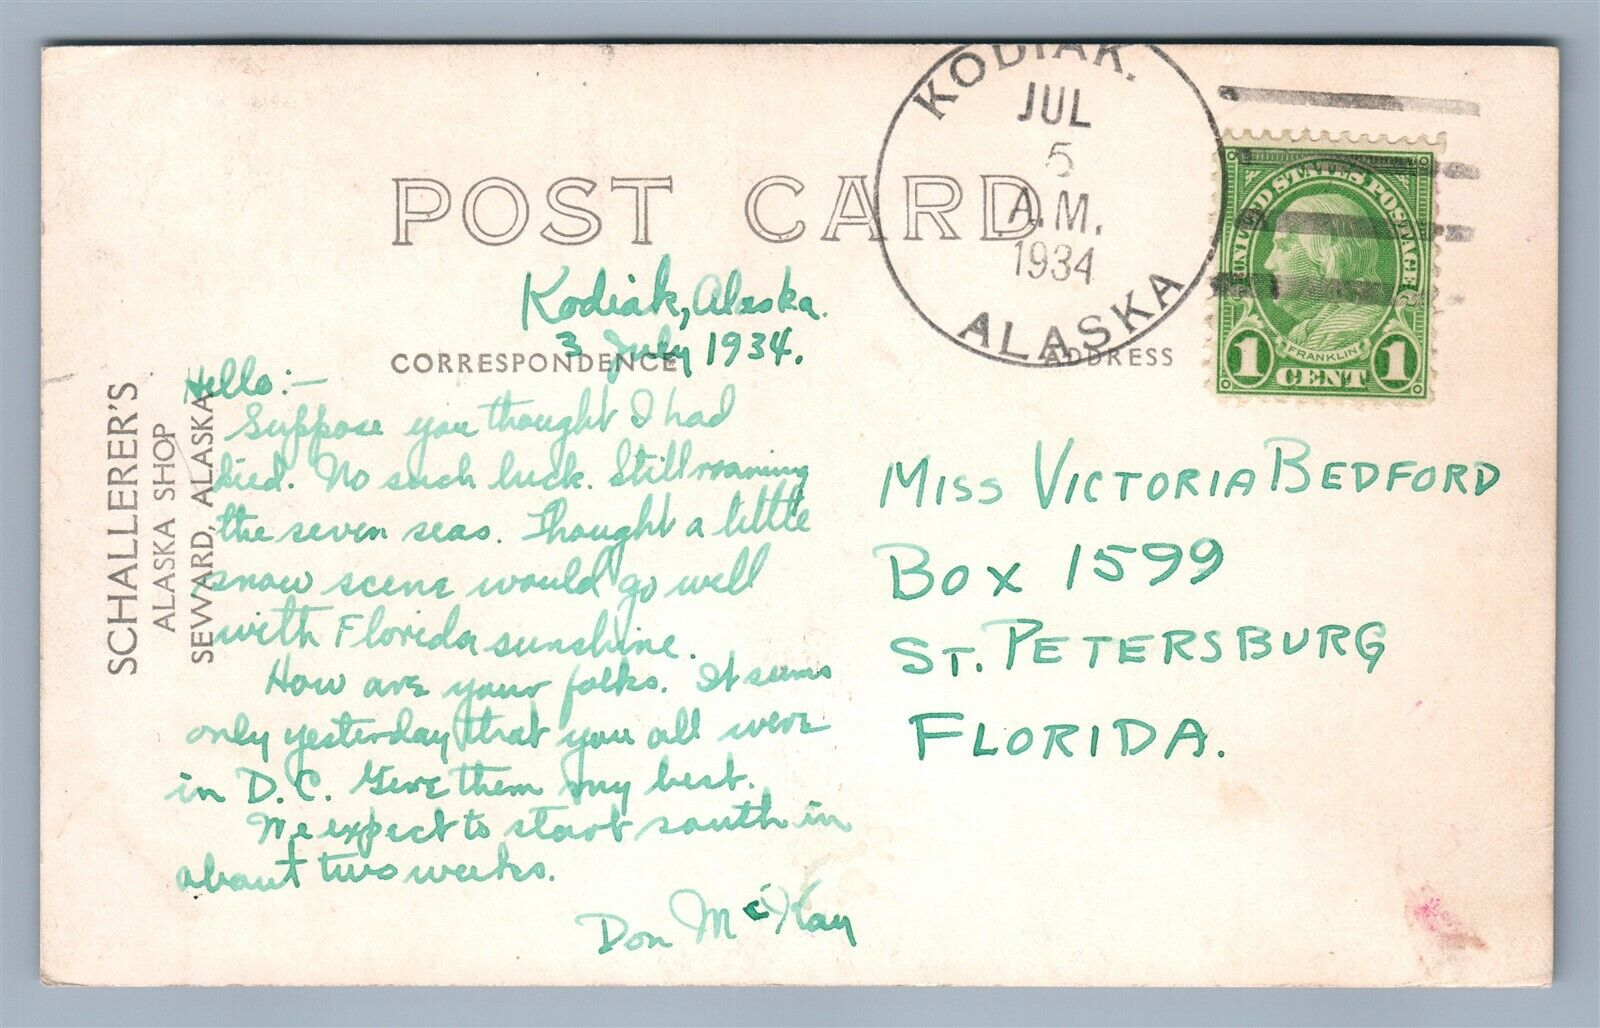 KODIAK.
JUL
5
A.M.
1934
ALASKA
UNITED STATES POSTAGE
FRANKLIN
1 CENT 1
POST CARD
CORRESPONDENCE
ADDRESS
SCHALLERER'S
ALASKA SHOP
SEWARD, ALASKA
Kodiak, Alaska.
3 July 1934.
Hello:-
Suppose you thought I had
died. No such luck. Still roaming
the seven seas. Thought a little
snow scene would go well
with Florida sunshine.
How are your folks. It seems
only yesterday that you all were
in D.C. Give them my best.
We expect to start south in
about two weeks.
Don McKay
MISS VICTORIA BEDFORD
BOX 1599
ST. PETERSBURG
FLORIDA.